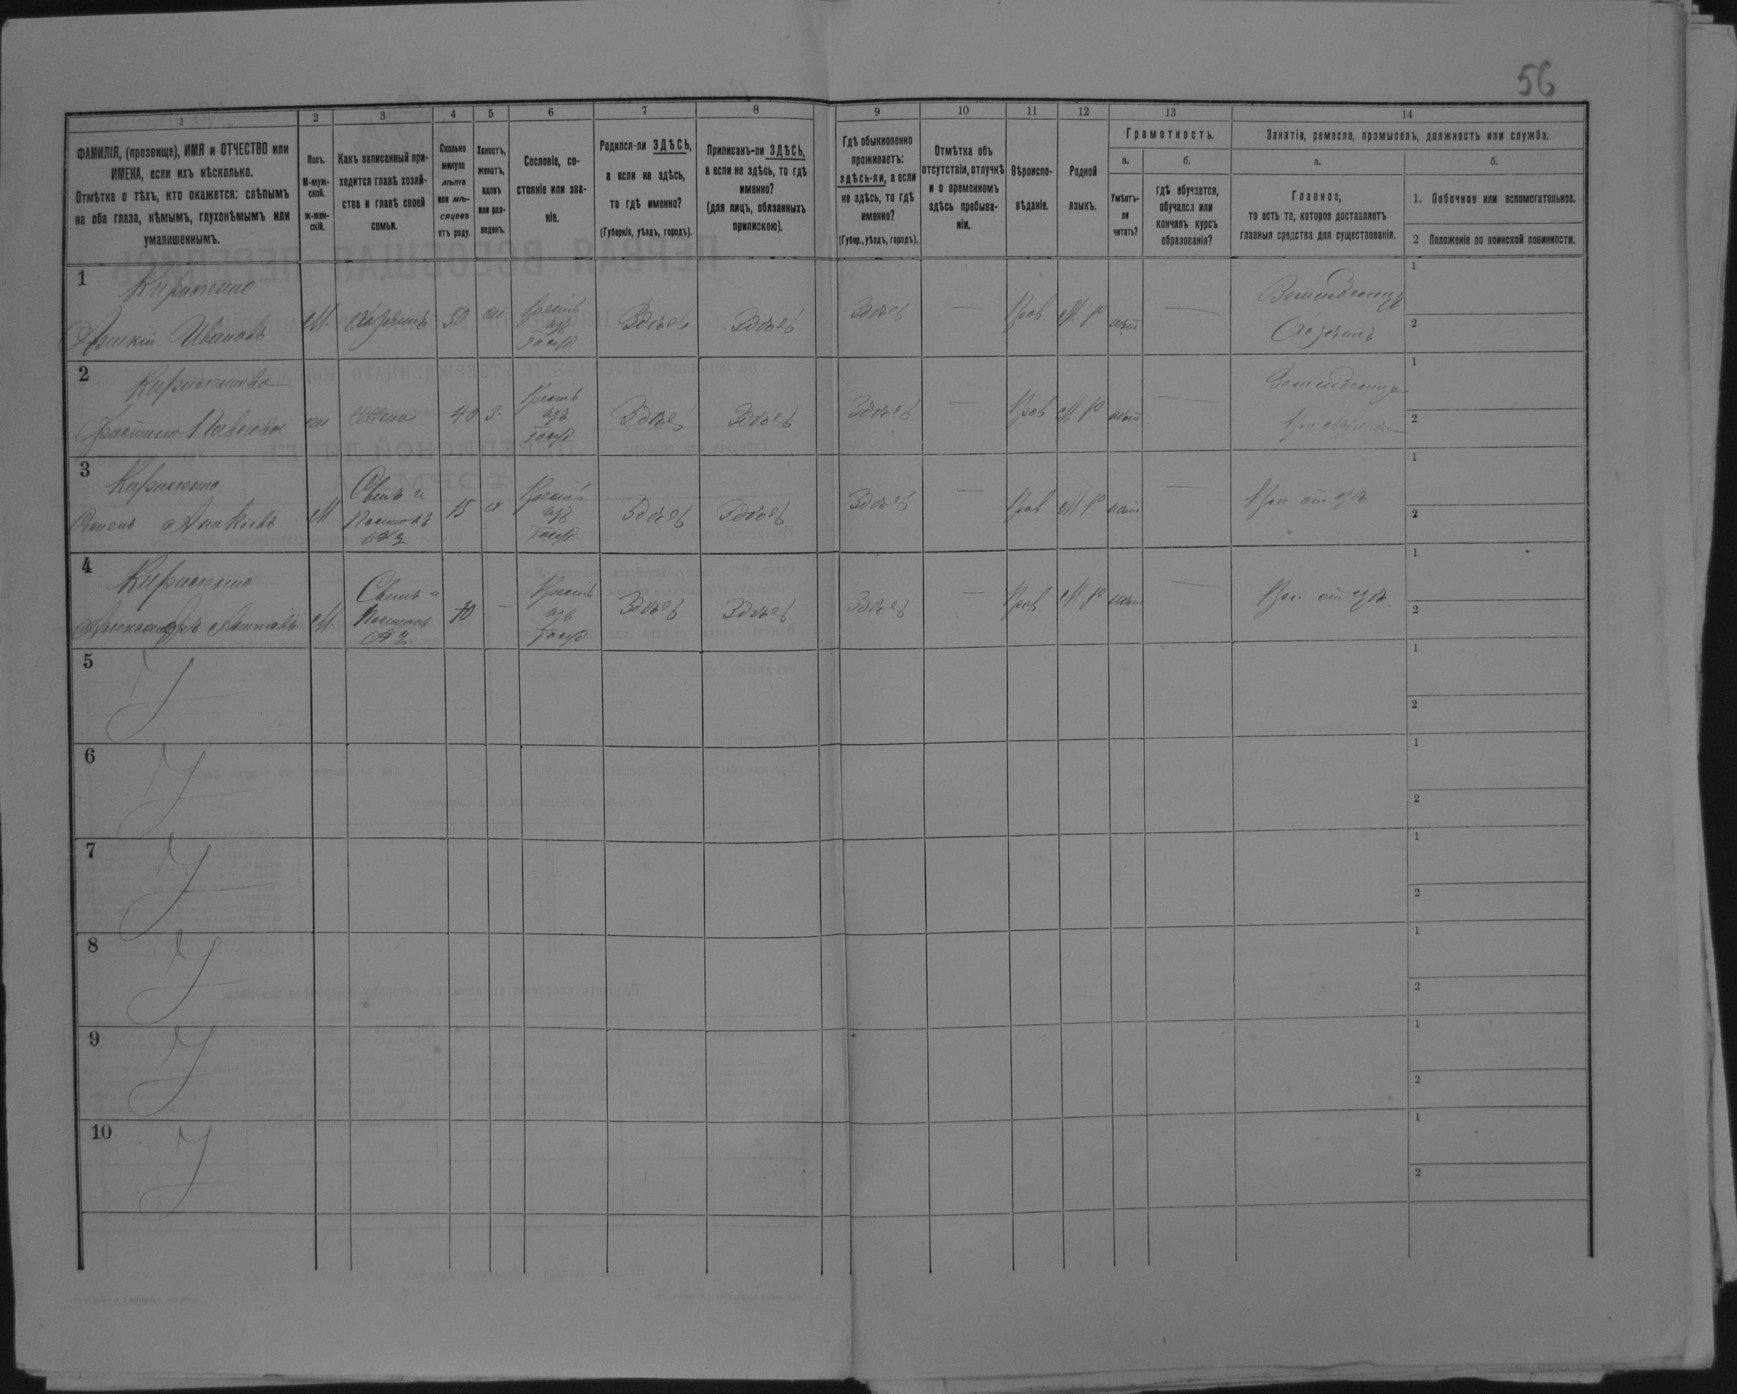 56
1 2 3 4 5 6 7 8 9 10 11 12 13 14
ФАМИЛІЯ, (прозвище), ИМЯ и ОТЧЕСТВО или
ИМЕНА, если ихъ нѣсколько.
Отмѣтка о тѣхъ, кто окажется: слѣпымъ
на оба глаза, нѣмымъ, глухонѣмымъ или
умалишеннымъ.
Полъ.
М-муж-
ской.
ж-жен-
скій.
Какъ записанный при-
ходится главѣ хозяй-
ства и главѣ своей
семьи.
Сколько
минуло
лѣтъ
или мѣ-
сяцевъ
отъ роду.
Холостъ,
женатъ,
вдовъ
или раз-
веденъ.
Сословіе, со-
стояніе или зва-
ніе.
Родился-ли ЗДѢСЬ,
а если не здѣсь,
то гдѣ именно?
(Губернія, уѣздъ, городъ).
Приписанъ-ли ЗДѢСЬ,
а если не здѣсь, то гдѣ
именно?
(для лицъ, обязанныхъ
припискою).
Гдѣ обыкновенно
проживаетъ:
здѣсь-ли, а если
не здѣсь, то гдѣ
именно?
(Губер., уѣздъ, городъ).
Отмѣтка объ
отсутствіи, отлучкѣ
и о временномъ
здѣсь пребыва-
ніи.
Вѣроиспо-
вѣданіе.
Родной
языкъ.
Грамотность.
а.
Умѣетъ-
ли
читать?
б.
гдѣ обучается,
обучался или
кончилъ курсъ
образованія?
Занятіе, ремесло, промыселъ, должность или служба.
а.
Главное,
то есть то, которое доставляетъ
главныя средства для существованія.
б.
1. Побочное или вспомогательное.
2 Положеніе по воинской повинности.
1
Кириченко
Иванов
М. Хозяинъ 50 ж Крест. из Госуд Здѣсь Здѣсь Здѣсь — Прав. М. Р нѣт —
Земледелец
Хозяинъ
1
2
2
Кириченкова
Павлова
ж Жена 40 з. Крест. из Госуд Здѣсь Здѣсь Здѣсь — Прав М Р нѣт —
Земледелец
1
2
3
Кириченко
Семенъ
М Сынъ 15 х Крест. из Госуд Здѣсь Здѣсь Здѣсь — Прав М Р —
При отцѣ
1
2
4
Кириченко
Александръ
М. Сынъ 10 — Крест. из Госуд Здѣсь Здѣсь Здѣсь — Прав. М. Р нѣт —
При отцѣ
1
2
5
1
2
6
1
2
7
1
2
8
1
2
9
1
2
10
1
2